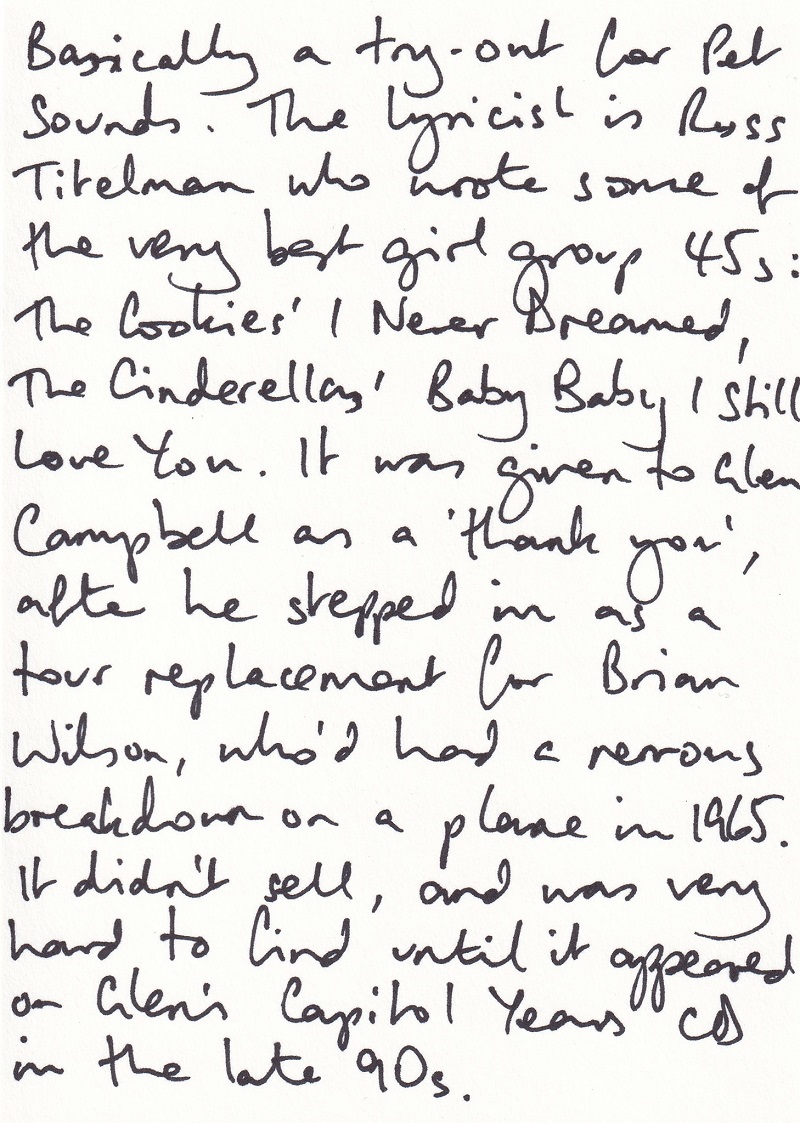 Basically a try-out for Pet
Sounds. The lyricist is Russ
Titelman who wrote some of
the very best girl group 45s:
The Cookies' I Never Dreamed,
The Cinderellas' Baby Baby I Still
Love You. It was given to Glen
Campbell as a 'thank you',
after he stepped in as a
tour replacement for Brian
Wilson, who'd had a nervous
breakdown on a plane in 1965.
It didn't sell, and was very
hard to find until it appeared
on Glen's Capitol Years CD
in the late 90s.